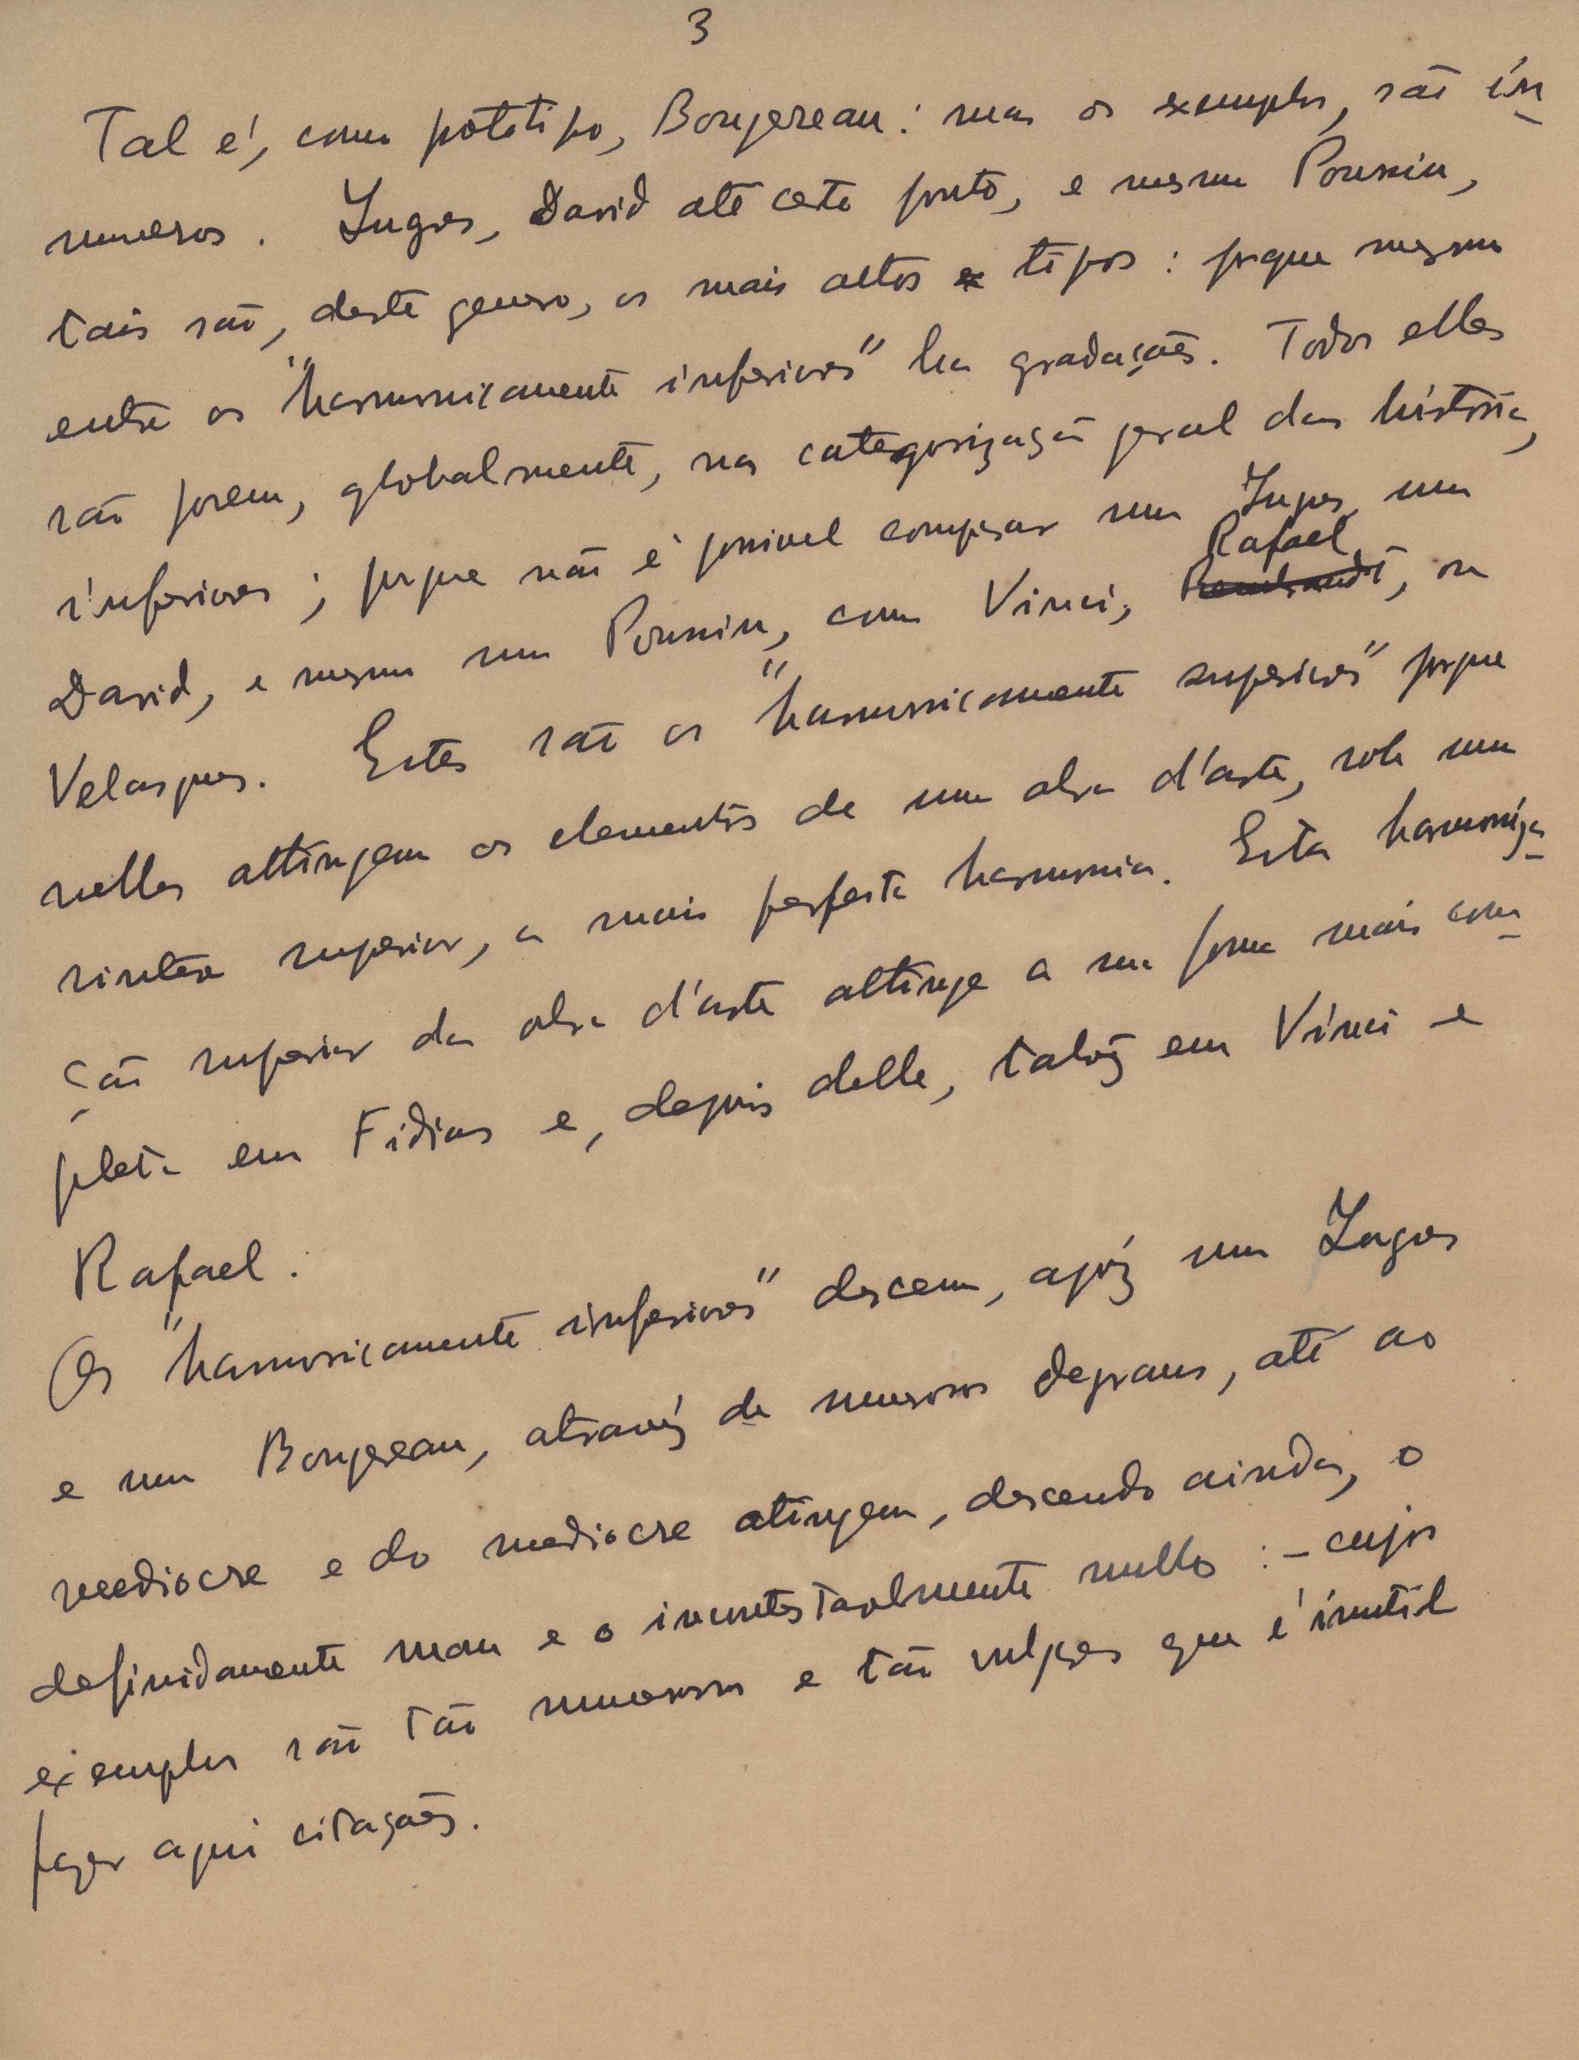 3
Tal é, como prototipo, Bougereau: mas os exemplos, são in
numeros. Ingres, David até certo ponto, e mesmo Poussin,
tais são, deste genero, os mais altos tipos: porque mesmo
entre os "harmonicamente inferiores" ha gradações. Todos elles
são porem, globalmente, na categorização geral da história,
inferiores; porque não é possivel comparar um Ingres, um
Rafael,
David, e mesmo um Poussin, com Vinci, Rembrandt, ou
Velasques. Estes são os "harmonicamente superiores" porque
nelles attingem os elementos de uma obra d'arte, sob uma
sintese superior, a mais perfeita harmonia. Esta harmoniza
ção superior da obra d'arte attinge a sua forma mais com
pleta em Fidias e, depois delle, talvez em Vinci e
Rafael.
Os "harmonicamente inferiores" descem, apóz um Ingres
e um Bougereau, atravéz de numerosos degraus, até ao
mediocre e do mediocre atingem, descendo ainda, o
definidamente mau e o incontestavelmente nullo: - cujos
exemplos são tão numerosos e tão vulgares que é inutil
fazer aqui citações.